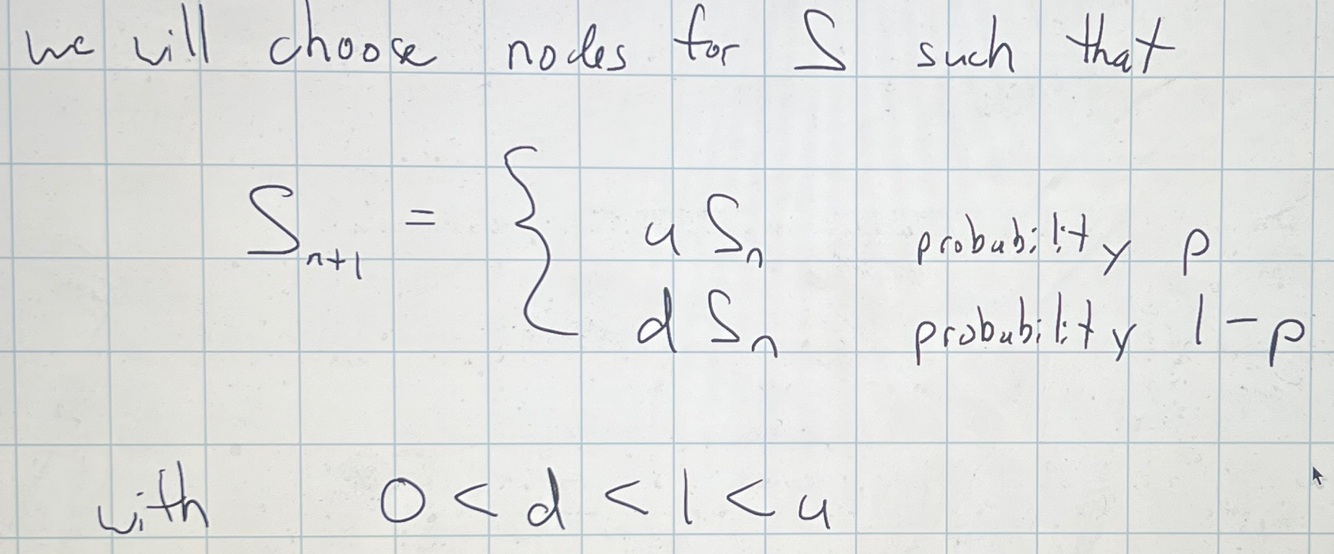 we will choose nodes for S such that
S_{n+1} = { u S_n probability p
d S_n probability 1-p
with 0 < d < 1 < u